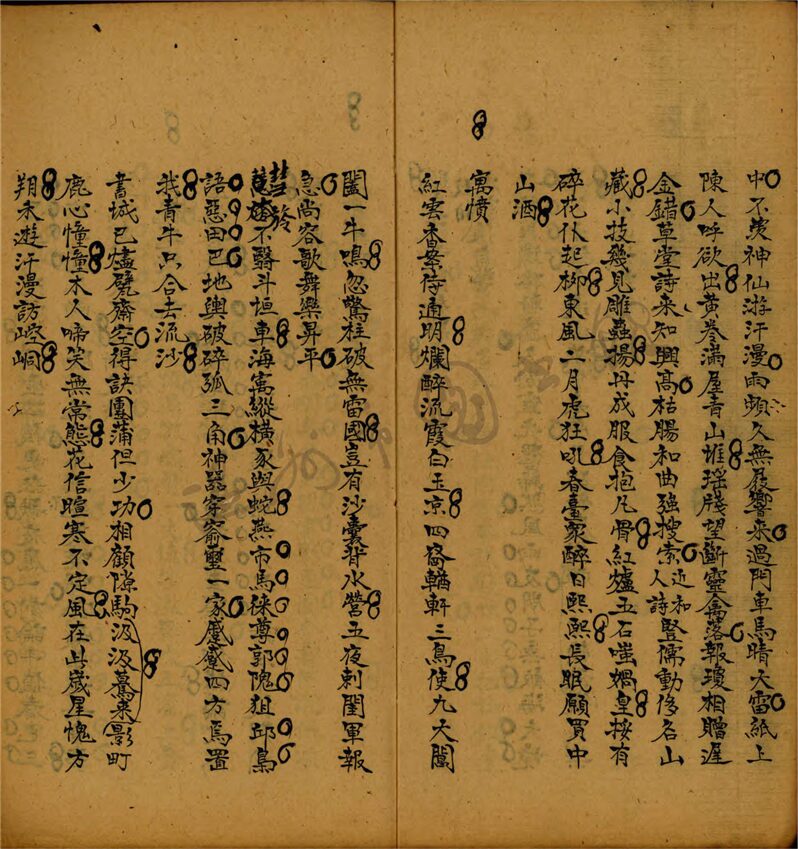 中不羨神仙游汗漫雨頻久無屐響來過門車馬晴天雷紙上
陳人呼欲出黃卷滿屋青山堆瑤牋望斷靈禽落報瓊相贈遲
金錯草堂詩來知興高枯腸和曲強搜索近和人詩豎儒動侈名山
藏小技幾見雕蟲揚丹成服食抱凡骨紅爐五石嗤媧皇接有
碎花仆起柳東風二月虎狂吼春臺眾醉日熙熙長眠願買中
山酒
寓憤
紅雲香案待通明爛醉流霞白玉涼四裔輶軒三鳥使九天閶
闔一牛鳴忽驚柱破無雷國豈有沙囊背水營五夜刺閨軍報
急尚容歌舞樂昇平
不翳斗垣車海寓縱橫豕與蛇燕市馬徠尊郭隗狙邱鳥
語惡田巴地輿破碎弧三角神器穿窬璽一家蹙蹙四方焉置
我青牛只合去流沙
書城已燼甓齋空得訣團蒲但少功相顧隙駒汲汲驀來影町
鹿心憧憧本人啼笑無常態花信暄寒不定風在世歲星愧方
朔未遊汗漫訪崆峒